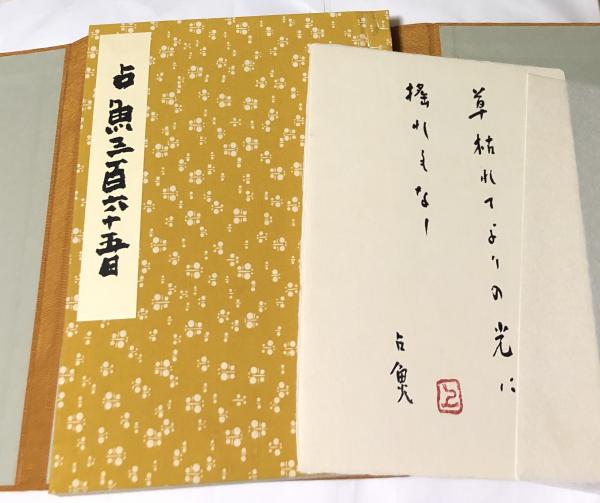 占魚三百六十五日
草枯れてよりの光に
搖れもなし
占魚